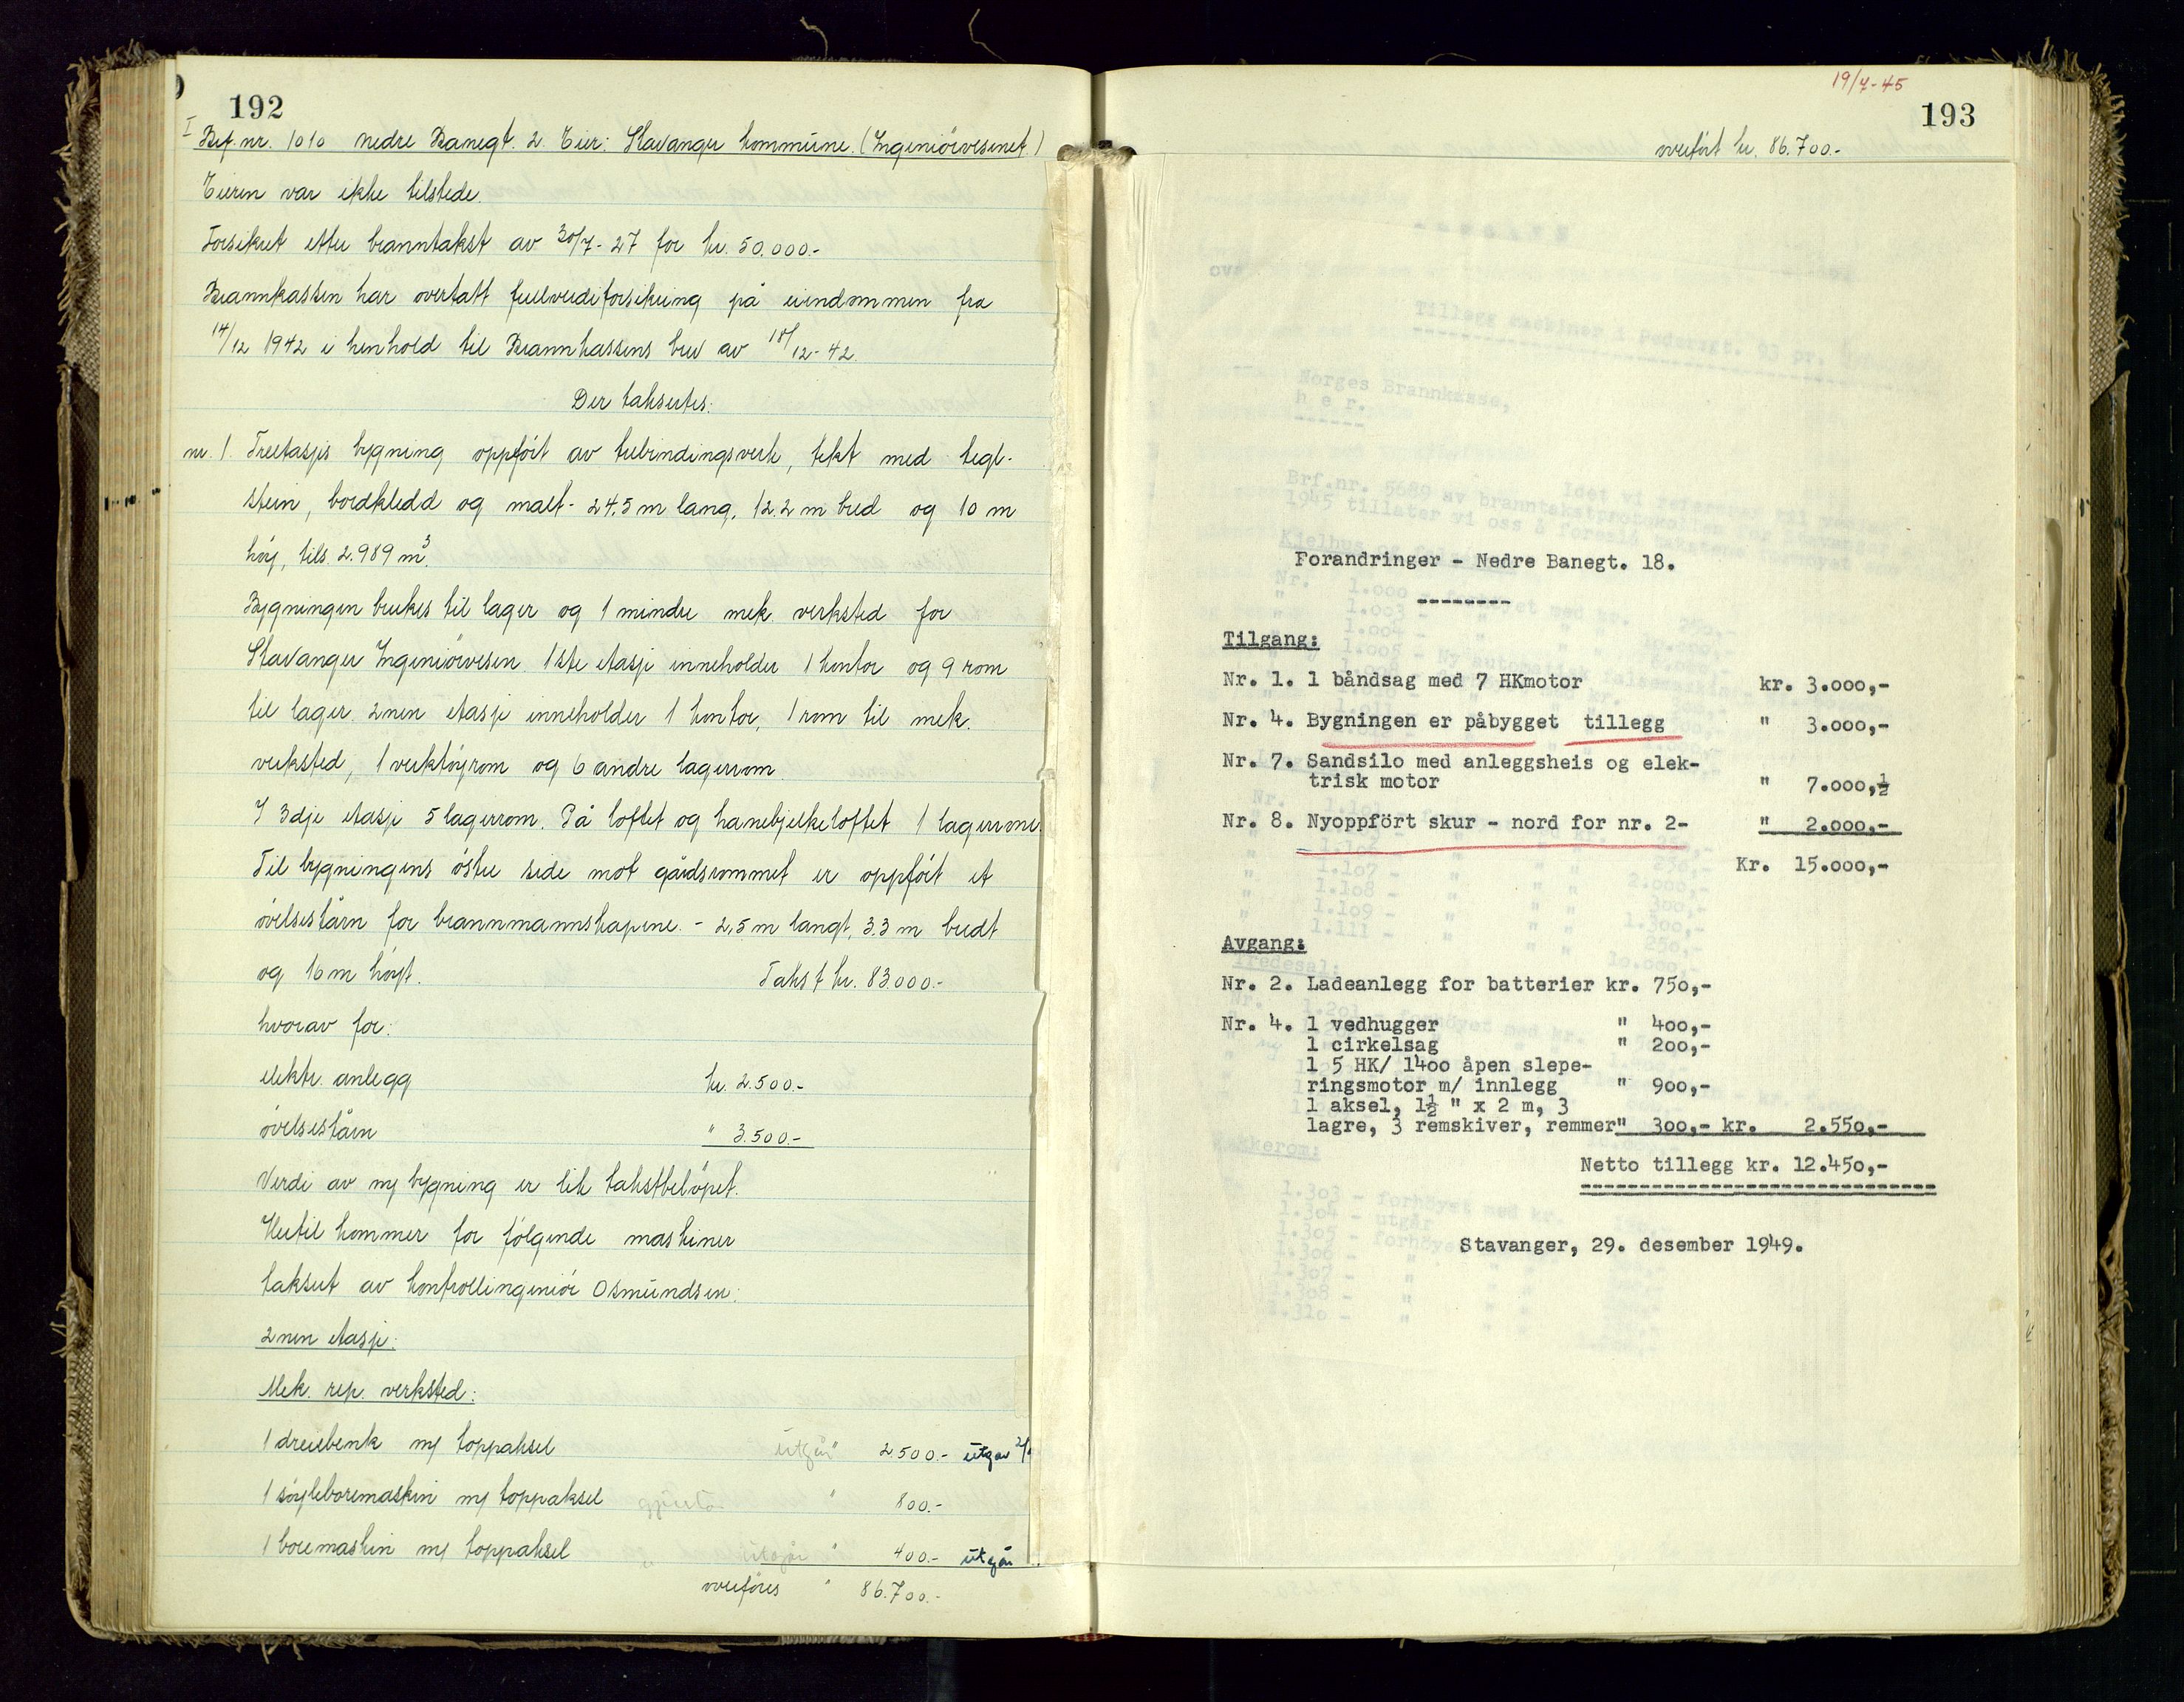 192
I Brf. nr. 1010 Nedre Banegt. 2. Eier: Stavanger kommune. (Ingeniörvesenet.)
Eieren var ikke tilstede.
Forsikret etter branntakst av 30/7-27 for kr. 50.000.-
Brannkassen har overtatt fullverdiforsikring på eiendommen fra
14/12 1942 i henhold til Brannkassens brev av 18/12-42.
Der takseres:
nr. 1. Treetasjes bygning oppfört av trebindingsverk, tekt med tegl-
stein, bordkledd og malt - 24.5 m lang, 12.2 m bred og 10 m
höy, tils. 2.989 m3.
Bygningen brukes til lager og 1 mindre mek. verksted for
Stavanger Ingeniörvesen. 1ste etasje inneholder 1 kontor og 9 rom
til lager. 2nen etasje inneholder 1 kontor, 1 rom til mek.
verksted, 1 verktöyrom og 6 andre lagerrom
I 3dje etasje 5 lagerrom. På loftet og hanebjelkeloftet 1 lagerrom.
Til bygningens östre side mot gårdsrommet er oppfört et
övelsestårn for brannmannskapene. - 2,5 m langt, 3.3 m bredt
og 16 m höyt. Takst kr. 83000.-
hvorav for:
elektr. anlegg kr. 2.500.-
övelsestårn " 3.500.-
Verdi av ny bygning er lik takstbelöpet.
Hertil kommer for fölgende maskiner
taksert av kontrollingeniör Osmundsen:
2nen etasje:
Mek. rep. verksted:
1 dreiebenk m/ toppaksel utgår " 2.500.- utgår
1 söyleboremaskin m/ toppaksel " 800.-
1 boremaskin m/ toppaksel utgår " 400.- utgår
overföres " 86.700.-
19/7-45
193
overfört kr. 86.700.-
Forandringer - Nedre Banegt. 18.
--------
Tilgang:
Nr. 1. 1 båndsag med 7 HKmotor kr. 3.000,-
Nr. 4. Bygningen er påbygget tillegg " 3.000,-
Nr. 7. Sandsilo med anleggsheis og elek-
trisk motor " 7.000,½
Nr. 8. Nyoppfört skur - nord for nr. 2- " 2.000,-
Kr. 15.000,-
Avgang:
Nr. 2. Ladeanlegg for batterier kr. 750,-
Nr. 4. 1 vedhugger " 400,-
1 cirkelsag " 200,-
1 5 HK/ 1400 åpen slepe-
ringsmotor m/ innlegg " 900,-
1 aksel, 1½ " x 2 m, 3
lagre, 3 remskiver, remmer" 300,- kr. 2.550,-
Netto tillegg kr. 12.450,-
Stavanger, 29. desember 1949.